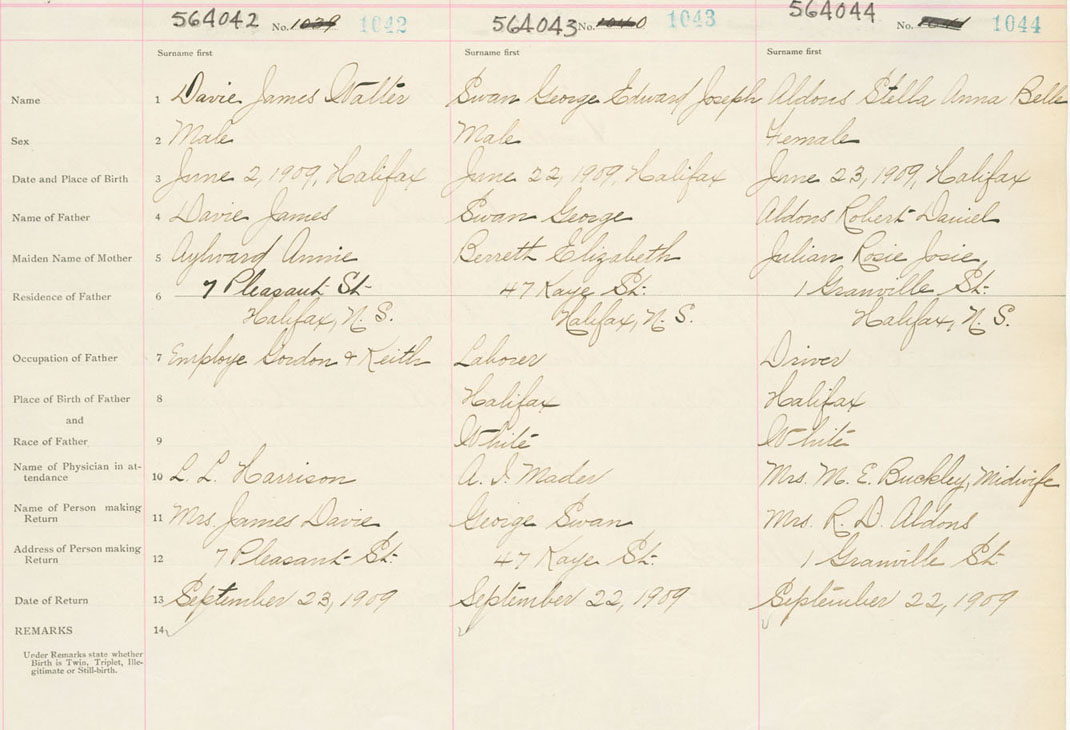 564042 No. 1039 1042 564043 No. 1040 1043 564044 No. 1041 1044
Surname first Surname first Surname first
Name 1 Davie James Walter Swan George Edward Joseph Aldons Stella Anna Belle
Sex 2 Male Male Female
Date and Place of Birth 3 June 2, 1909, Halifax June 22, 1909, Halifax June 23, 1909, Halifax
Name of Father 4 Davie James Swan George Aldons Robert Daniel
Maiden Name of Mother 5 Aylward Annie Berreth Elizabeth Julian Rosie Josie
Residence of Father 6 7 Pleasant St. 47 Kaye St. 1 Granville St.
Halifax, N. S. Halifax, N. S. Halifax, N. S.
Occupation of Father 7 Employe Gordon & Keith Laborer Driver
Place of Birth of Father 8 Halifax Halifax
and
Race of Father 9 White White
Name of Physician in at-
tendance 10 L. L. Harrison A. I. Mader Mrs. M. E. Buckley, Midwife
Name of Person making
Return 11 Mrs. James Davie George Swan Mrs. R. D. Aldons
Address of Person making
Return 12 7 Pleasant St. 47 Kaye St. 1 Granville St.
Date of Return 13 September 23, 1909 September 22, 1909 September 22, 1909
REMARKS 14
Under Remarks state whether
Birth is Twin, Triplet, Ille-
gitimate or Still-birth.